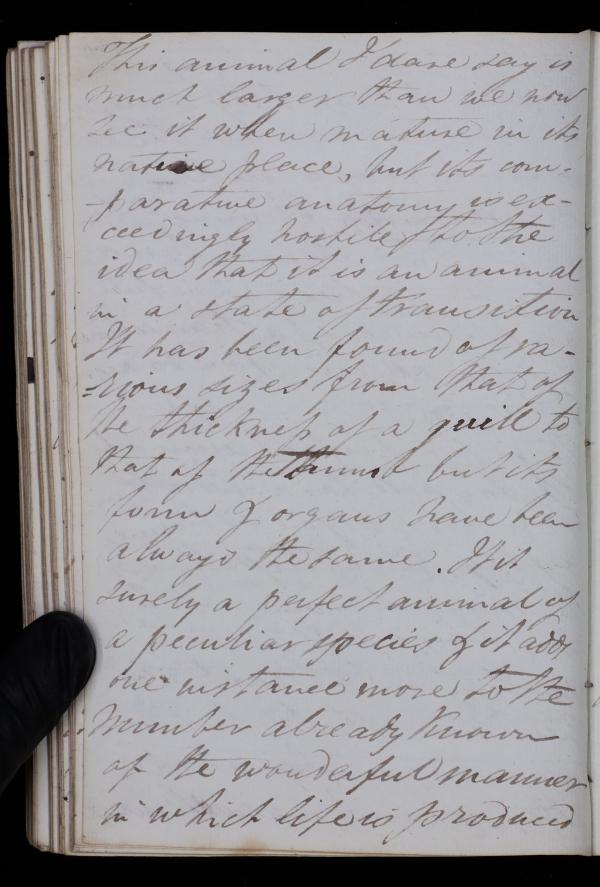 This animal I dare say is
much larger than we now
see it when mature in its
native place, but its com-
-parative anatomy is ex-
ceedingly hostile to the
idea that it is an animal
in a state of transition
It has been found of va-
=rious sizes from that of
the thickness of a quill to
that of the thumb but its
form & organs have been
always the same. It is
surely a perfect animal of
a peculiar species & it adds
one instance more to the
number already known
of the wonderful manner
in which life is produced